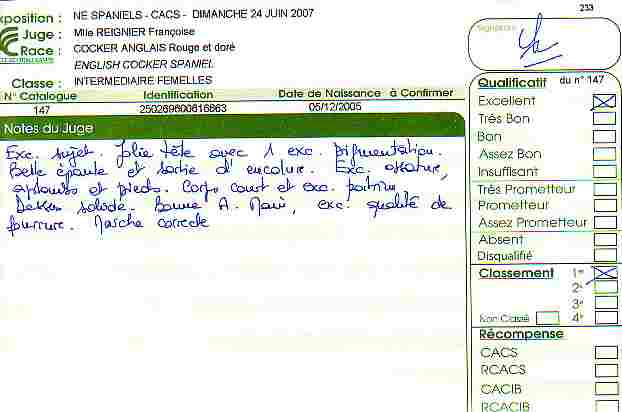 xposition : NE SPANIELS - CACS - DIMANCHE 24 JUIN 2007
Juge : Mlle REIGNIER Françoise
Race : COCKER ANGLAIS Rouge et doré
ENGLISH COCKER SPANIEL
Classe : INTERMEDIAIRE FEMELLES
N° Catalogue Identification Date de Naissance à Confirmer
147 250269600616663 05/12/2005
Notes du Juge
Exc. sujet. Jolie tête avec 1 exc. pigmentation.
Belle épaule et sortie d'encolure. Exc. ossature,
aplombs et pieds. Corps court et exc. poitrine
Dessus solide. Bonne A. Main, exc. qualité de
fourrure. Marche correcte
233
Signature
Qualificatif du n° 147
Excellent
Très Bon
Bon
Assez Bon
Insuffisant
Très Prometteur
Prometteur
Assez Prometteur
Absent
Disqualifié
Classement 1er
2e
3e
Non Classé 4e
Récompense
CACS
RCACS
CACIB
RCACIB